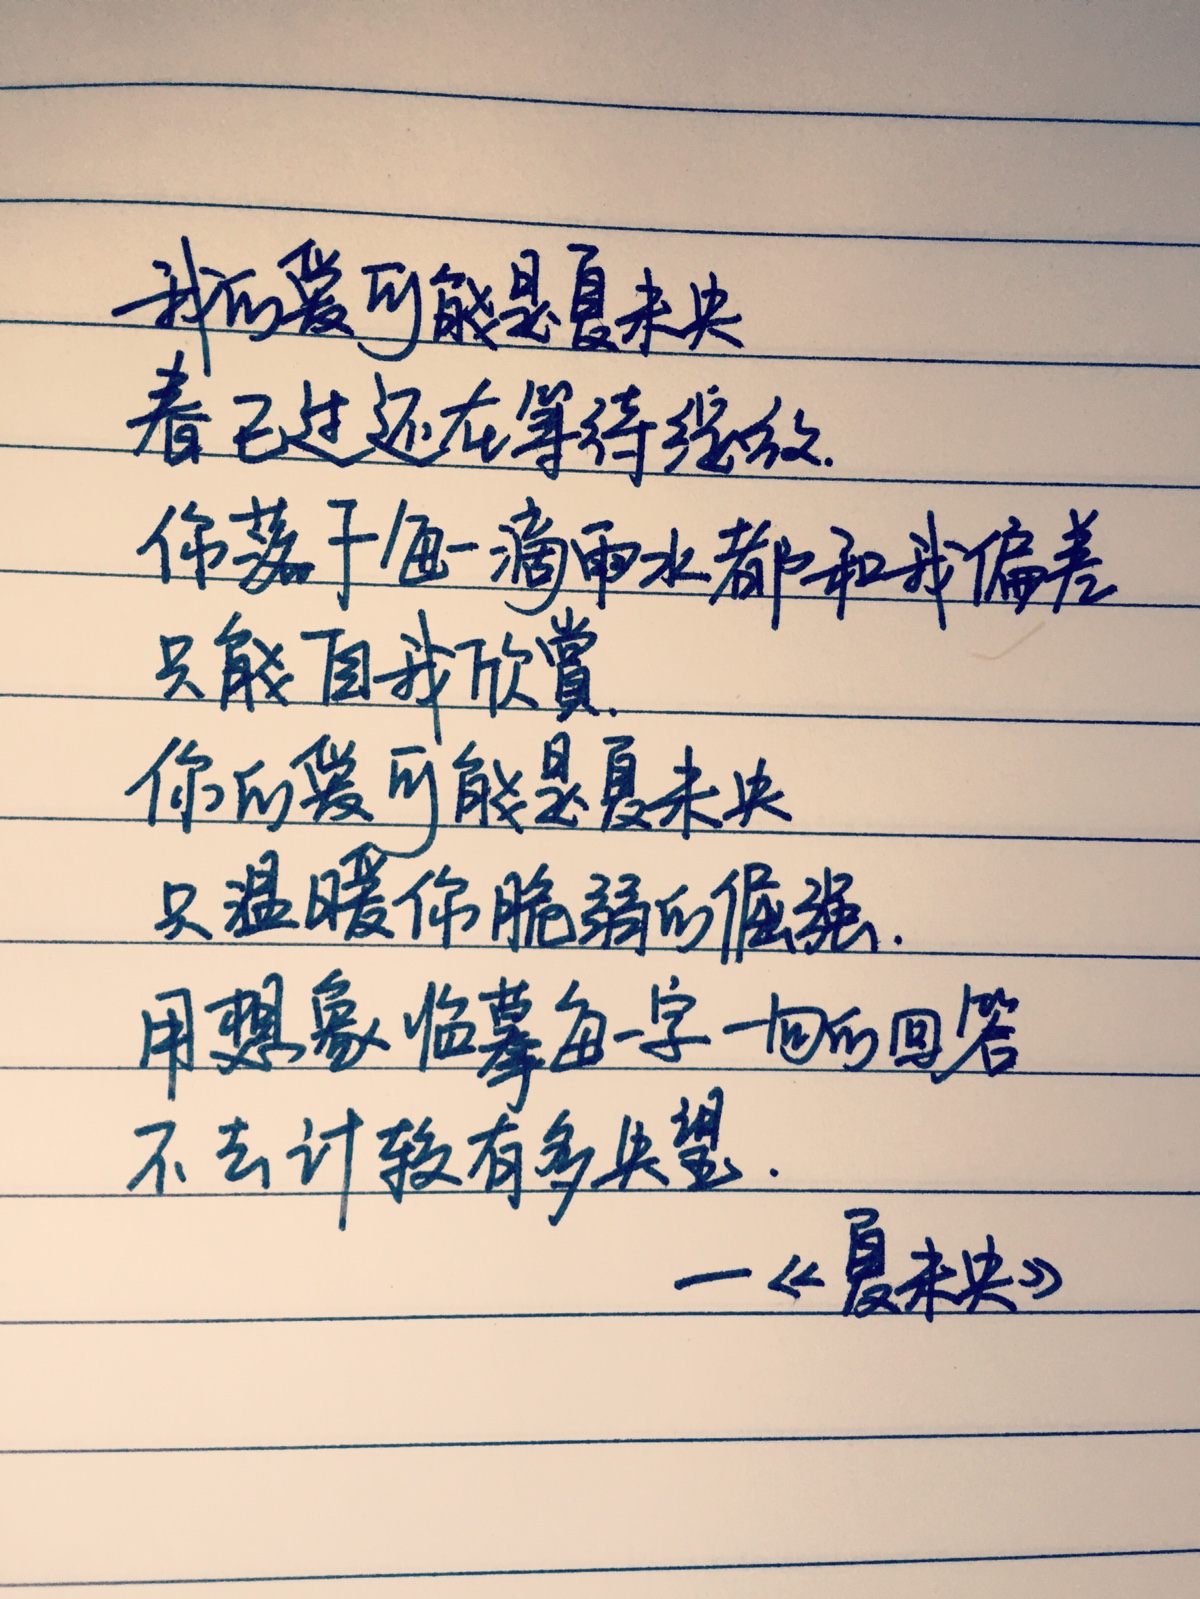 我的爱可能是夏未央
春已过还在等待绽放.
你落于每一滴雨水都和我偏差
只能自我欣赏.
你的爱可能是夏未央
只温暖你脆弱的倔强.
用想象临摹每一字一句的回答
不去计较有多失望.
—《夏未央》